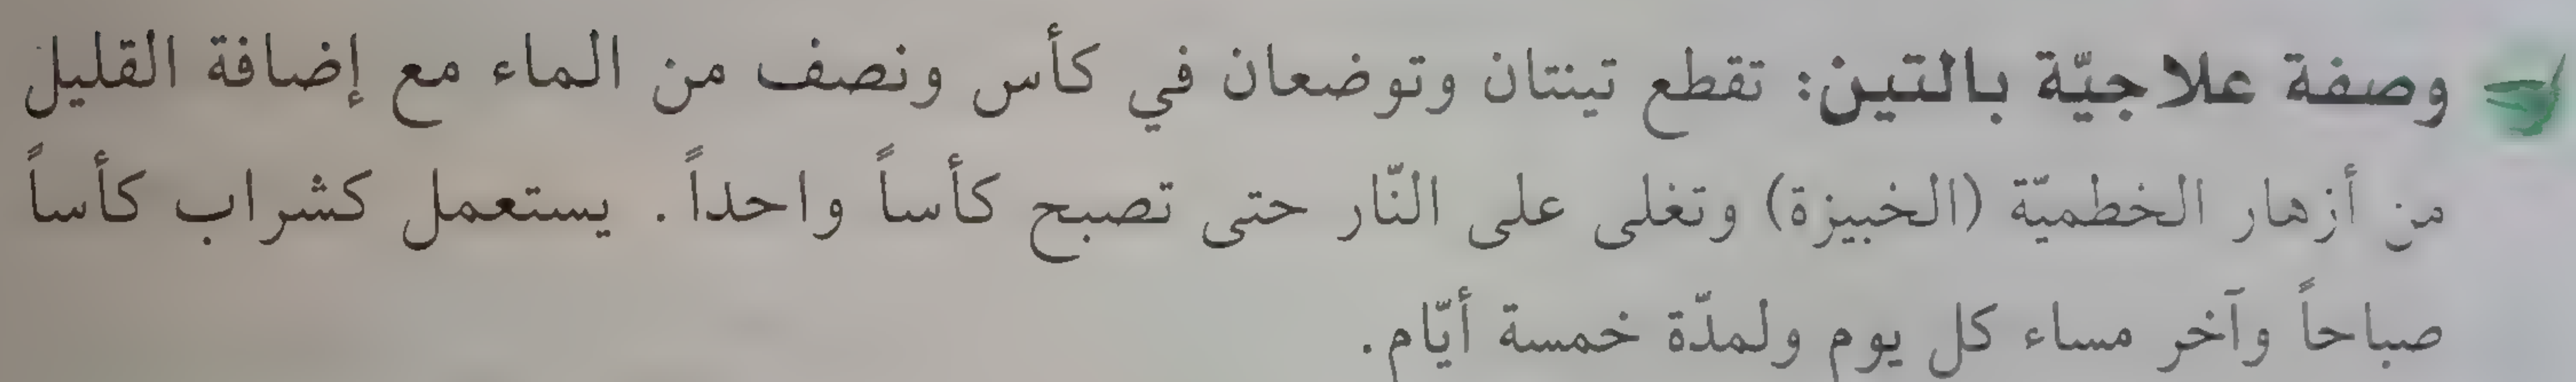 وصفة علاجيّة بالتين: تقطع تينتان وتوضعان في كأس ونصف من الماء مع إضافة القليل
من أزهار الخطميّة (الخبيزة) وتغلى على النّار حتى تصبح كأساً واحداً. يستعمل كشراب كأساً
صباحاً وآخر مساء كل يوم ولمدّة خمسة أيّام.